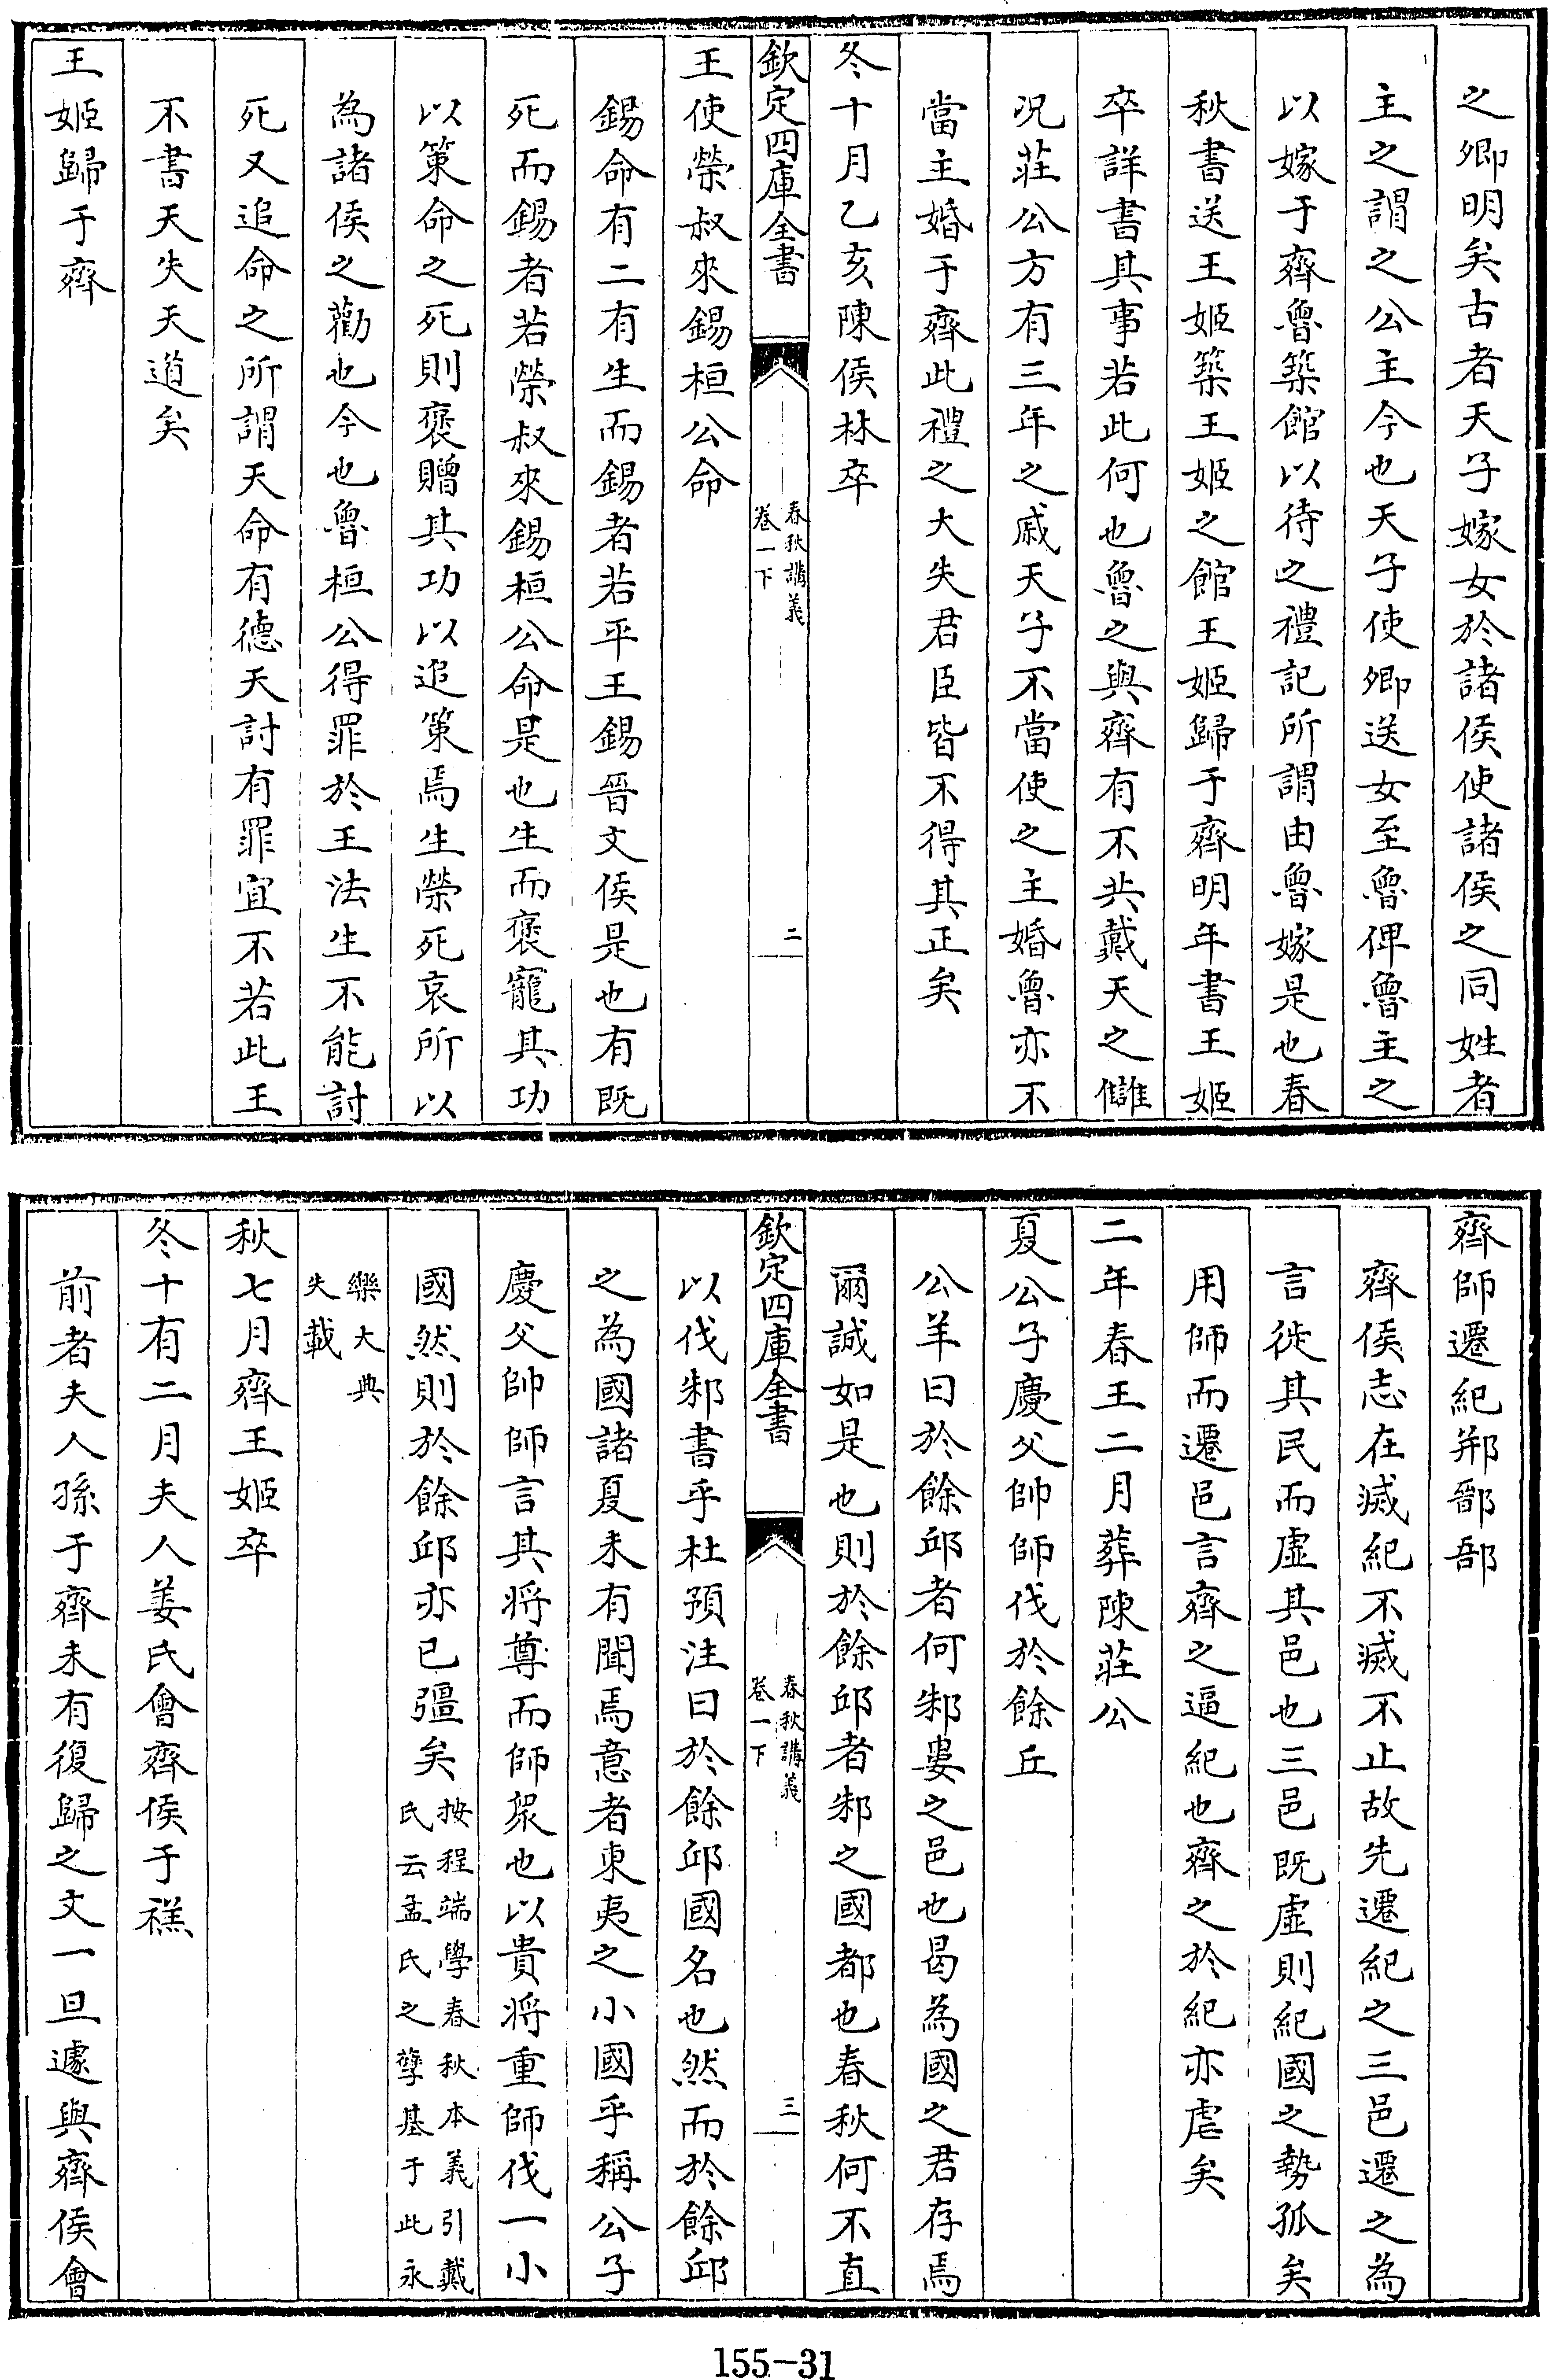 之卿明矣古者天子嫁女於諸侯使諸侯之同姓者
主之謂之公主今也天子使卿送女至魯俾魯主之
以嫁于齊魯築館以待之禮記所謂由魯嫁是也春
秋書送王姬築王姬之館王姬歸于齊明年書王姬
卒詳書其事若此何也魯之與齊有不共戴天之讎
况莊公方有三年之戚天子不當使之主婚魯亦不
當主婚于齊此禮之大失君臣皆不得其正矣
冬十月乙亥陳侯林卒
欽定四庫全書
春秋講義
卷一下
二
王使榮叔來錫桓公命
錫命有二有生而錫者若平王錫晉文侯是也有既
死而錫者若榮叔來錫桓公命是也生而褒寵其功
以策命之死則褒贈其功以追策焉生榮死哀所以
為諸侯之勸也今也魯桓公得罪於王法生不能討
死又追命之所謂天命有德天討有罪宜不若此王
不書天失天道矣
王姬歸于齊
齊師遷紀郱鄑郚
齊侯志在滅紀不滅不止故先遷紀之三邑遷之為
言徙其民而虛其邑也三邑既虛則紀國之勢孤矣
用師而遷邑言齊之逼紀也齊之於紀亦虐矣
二年春王二月葬陳莊公
夏公子慶父帥師伐於餘丘
公羊曰於餘邱者何邾婁之邑也曷為國之君存焉
爾誠如是也則於餘邱者邾之國都也春秋何不直
欽定四庫全書
春秋講義
卷一下
三
以伐邾書乎杜預注曰於餘邱國名也然而於餘邱
之為國諸夏未有聞焉意者東夷之小國乎稱公子
慶父帥師言其將尊而師衆也以貴將重師伐一小
國然則於餘邱亦已彊矣按程端學春秋本義引戴
氏云孟氏之孽基于此永
樂大典
失載
秋七月齊王姬卒
冬十有二月夫人姜氏會齊侯于禚
前者夫人孫于齊未有復歸之文一旦遽與齊侯會
155-31